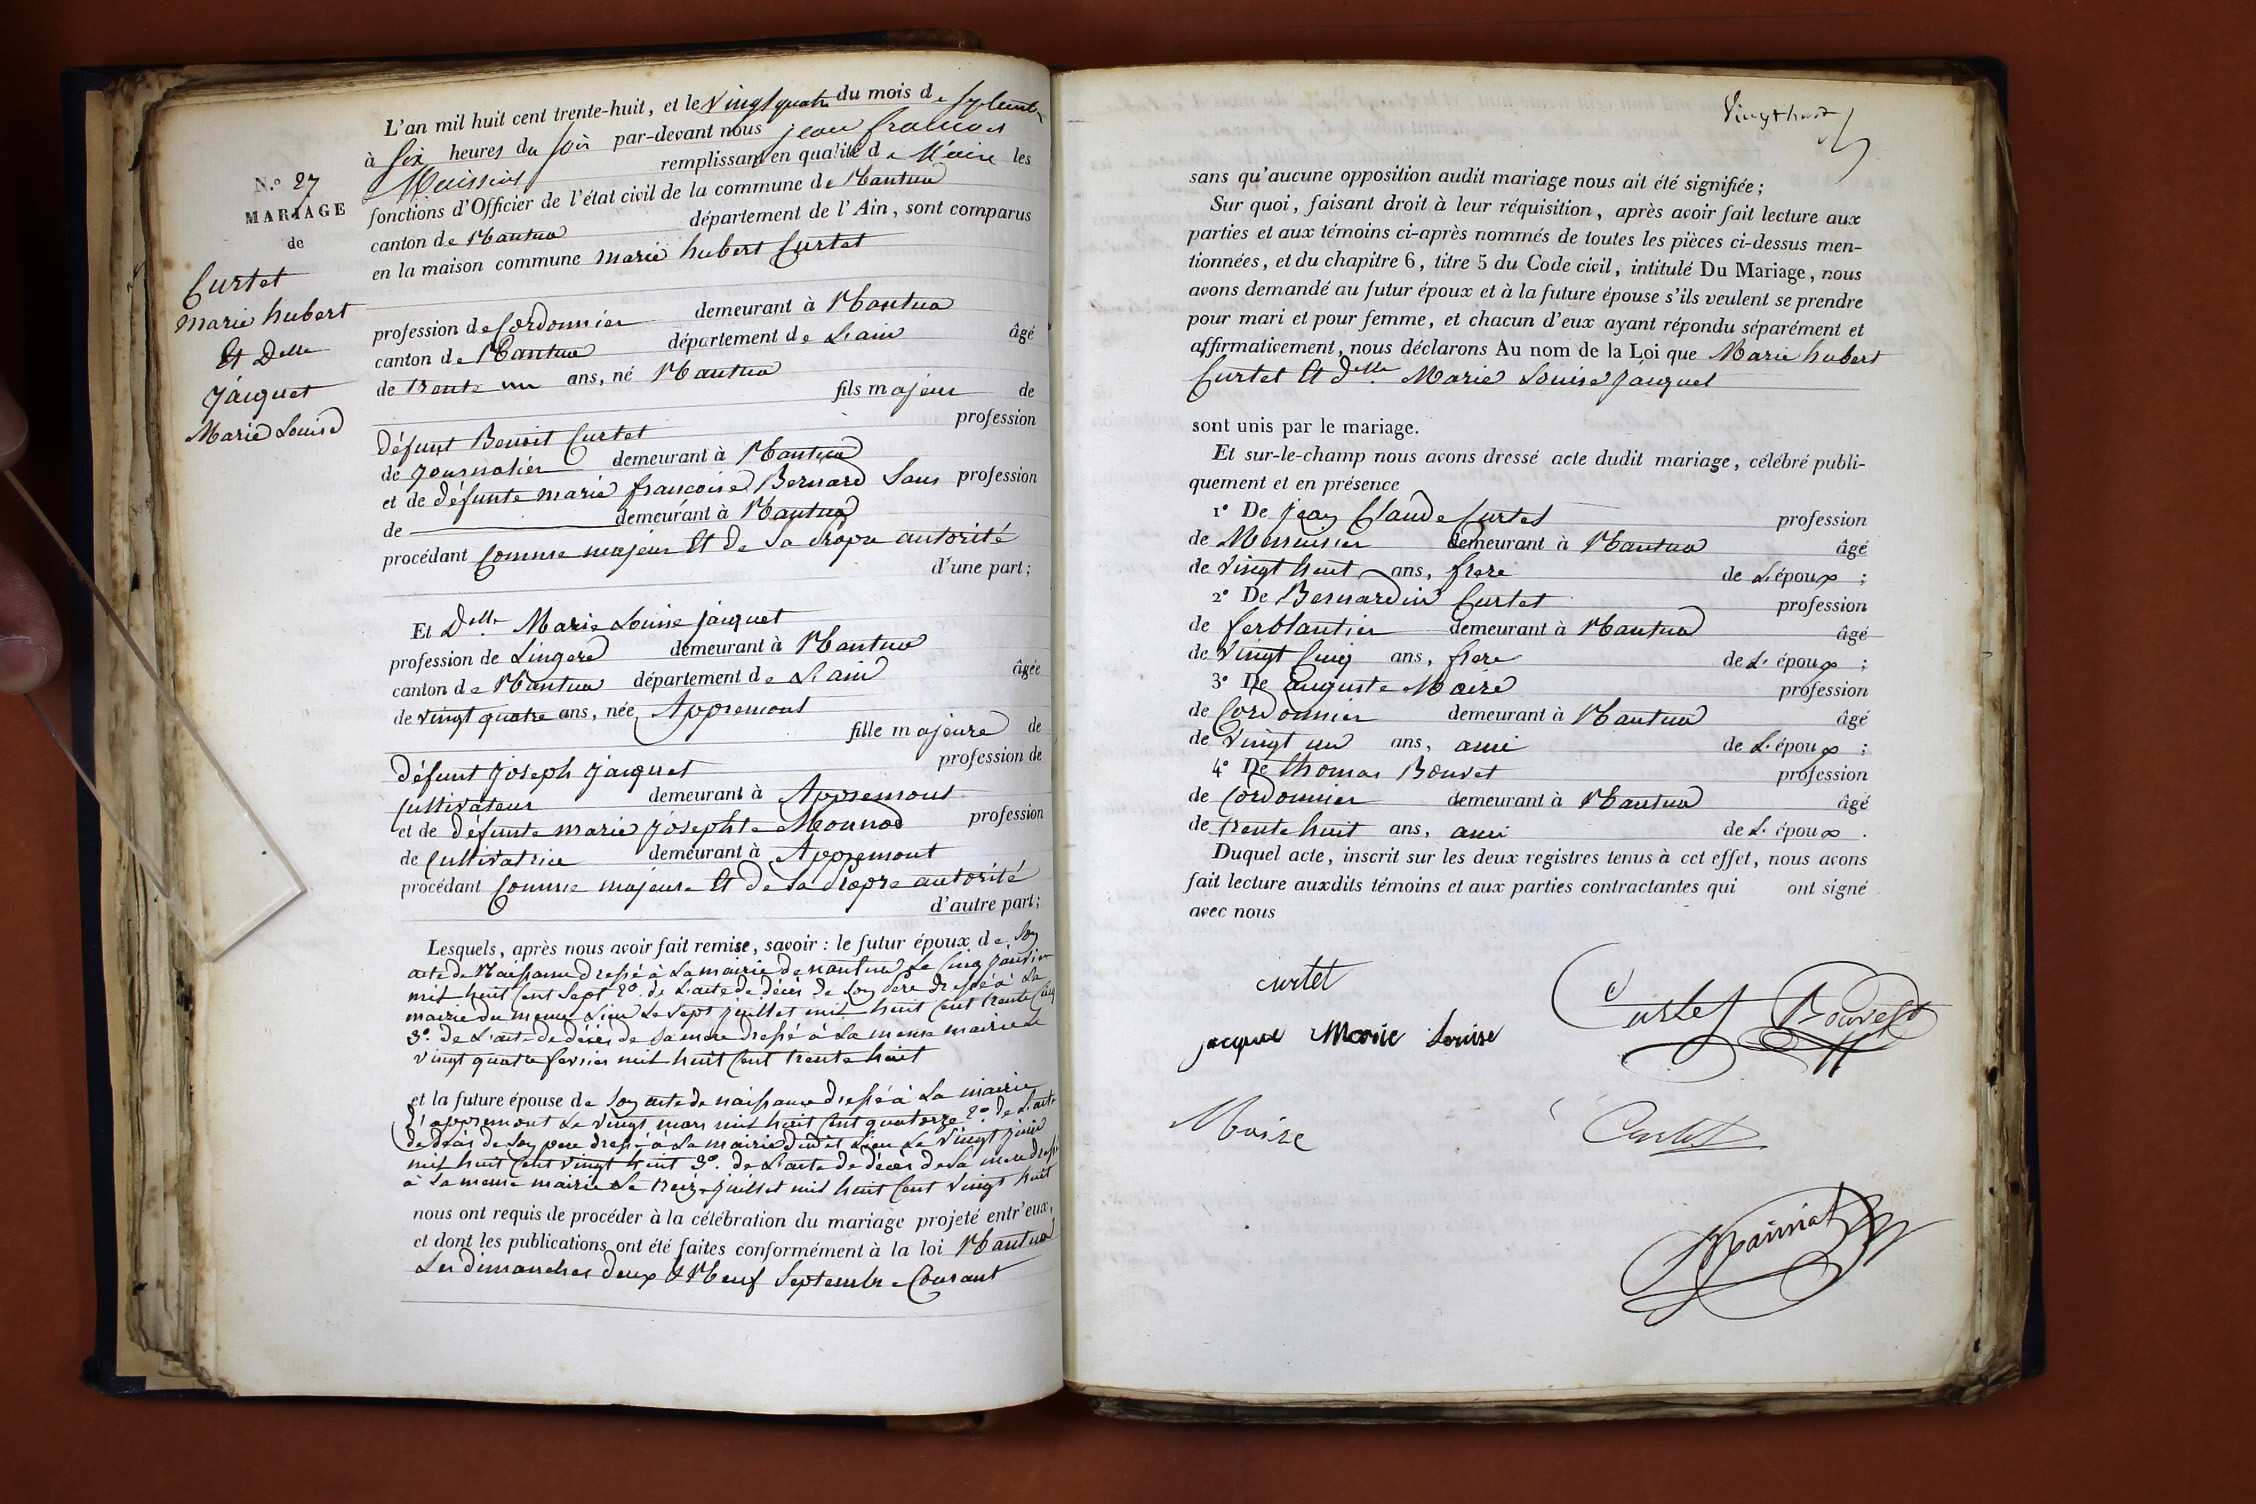 N.o 27
MARIAGE
de
Curtet
marie hubert
Et Delle
Jacquet
Marie Louise
L'an mil huit cent trente-huit, et le vingt quatre du mois de septembre
à six heures du soir par-devant nous jean francois
remplissant en qualité de Maire les
fonctions d'Officier de l'état civil de la commune de Nantua
canton de Nantua département de l'Ain, sont comparus
en la maison commune marie hubert Curtet
profession de Cordonnier demeurant à Nantua
canton de Nantua département de L'ain âgé
de trente un ans, né Nantua
fils majeur de
défunt Benoit Curtet profession
de Journalier demeurant à Nantua
et de défunte marie francoise Bernard Sans profession
de demeurant à Nantua
procédant Comme majeur Et de Sa Propre autorité
d'une part;
Et Delle Marie Louise jacquet
profession de Lingere demeurant à Nantua
canton de Nantua département de L'ain âgée
de vingt quatre ans, née Appremont
fille majeure de
défunt Joseph Jacquet profession de
Cultivateur demeurant à Appremont
et de défunte marie josephte Monnod profession
de Cultivatrice demeurant à Appremont
procédant Comme majeure Et de Sa Propre autorité
d'autre part;
Lesquels, après nous avoir fait remise, savoir : le futur époux de Son
acte de Naissance dressé à La mairie de nantua Le Cinq janvier
mil huit Cent Sept 2o. de L'acte de décès de Son père dressé à La
mairie du meme Lieu Le Sept juillet mil huit Cent trente Cinq
3o. de L'acte de décès de Sa mere dressé à La meme mairie Le
vingt quatre fevrier mil huit Cent trente huit
et la future épouse de Son acte de naissance dressé à La mairie
d'appremont Le vingt mars mil huit Cent quatorze 2o. de L'acte
de décès de Son pere dressé à La mairie dudit Lieu Le vingt juin
mil huit Cent vingt huit 3o. de L'acte de décès de Sa mere dressé
à La meme mairie Le treize juillet mil huit Cent vingt huit
nous ont requis de procéder à la célébration du mariage projeté entr'eux,
et dont les publications ont été faites conformément à la loi Nantua
Les dimanches deux Et Neuf Septembre Courant
Vingt huit
sans qu'aucune opposition audit mariage nous ait été signifiée;
Sur quoi, faisant droit à leur réquisition, après avoir fait lecture aux
parties et aux témoins ci-après nommés de toutes les pièces ci-dessus men-
tionnées, et du chapitre 6, titre 5 du Code civil, intitulé Du Mariage, nous
avons demandé au futur époux et à la future épouse s'ils veulent se prendre
pour mari et pour femme, et chacun d'eux ayant répondu séparément et
affirmativement, nous déclarons Au nom de la Loi que Marie hubert
Curtet Et delle. Marie Louise Jacquet
sont unis par le mariage.
Et sur-le-champ nous avons dressé acte dudit mariage, célébré publi-
quement et en présence
1o De jean Claude Curtet profession
de Menuisier demeurant à Nantua âgé
de vingt huit ans, frere de L'époux ;
2o De Bernardin Curtet profession
de ferblantier demeurant à Nantua âgé
de vingt Cinq ans, frere de L'époux ;
3o De auguste Moire profession
de Cordonnier demeurant à Nantua âgé
de vingt un ans, ami de L'époux ;
4o De thomas Bouvet profession
de Cordonnier demeurant à Nantua âgé
de trente huit ans, ami de L'époux .
Duquel acte, inscrit sur les deux registres tenus à cet effet, nous avons
fait lecture auxdits témoins et aux parties contractantes qui ont signé
avec nous
curtet
Curtet Bouvet
jacquet Marie Louise
Moire
Curtet